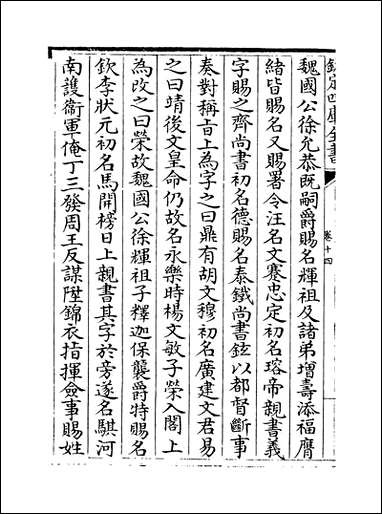 欽定四庫全書
卷十四
魏國公徐允恭既嗣爵賜名輝祖及諸弟增壽添福膺
緒皆賜名又賜署令汪名文蹇忠定初名瑢帝親書義
字賜之齊尚書初名德賜名泰鐵尚書鉉以都督斷事
奏對稱旨上為字之曰鼎石有胡文穆初名廣建文君易
之曰靖後文皇命仍故名永樂時楊文敏子榮入閣上
為改之曰榮故魏國公徐輝祖子釋迦保襲爵特賜名
欽李狀元初名馬開榜日上親書其字於旁遂名騏河
南護衛軍俺丁三發周王反謀陞錦衣指揮僉事賜姓